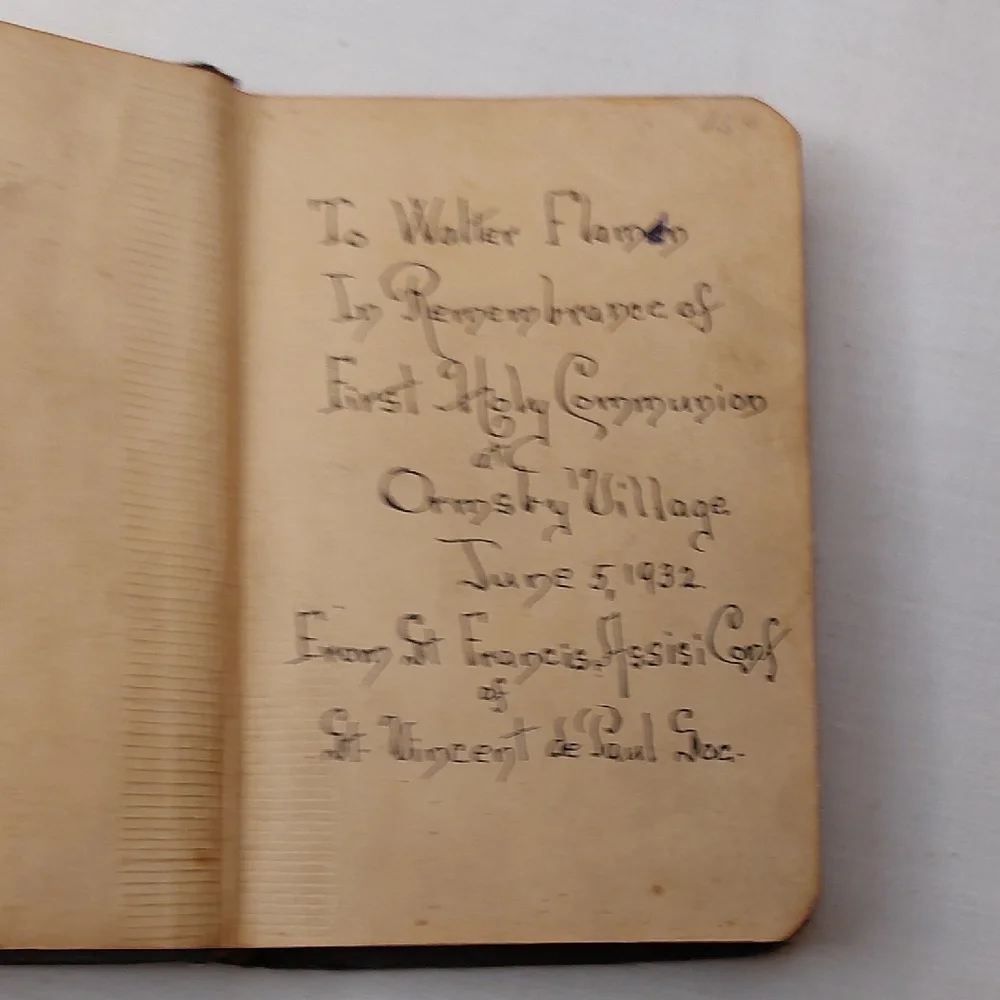 To Walter
In Remembrance of
First Holy Communion
at
Ormsby Village
June 5, 1932
From St Francis Assisi Conf
of
St Vincent de Paul Soc.